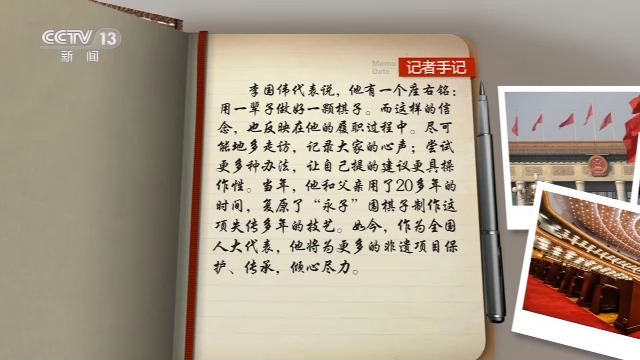 CCTV 13
新闻
Memo
Date
记者手记
李国伟代表说，他有一个座右铭：
用一辈子做好一颗棋子。而这样的信
念，也反映在他的履职过程中。尽可
能地多走访，记录大家的心声；尝试
更多种办法，让自己提的建议更具操
作性。当年，他和父亲用了20多年的
时间，复原了“永子”围棋子制作这
项失传多年的技艺。如今，作为全国
人大代表，他将为更多的非遗项目保
护、传承，倾心尽力。